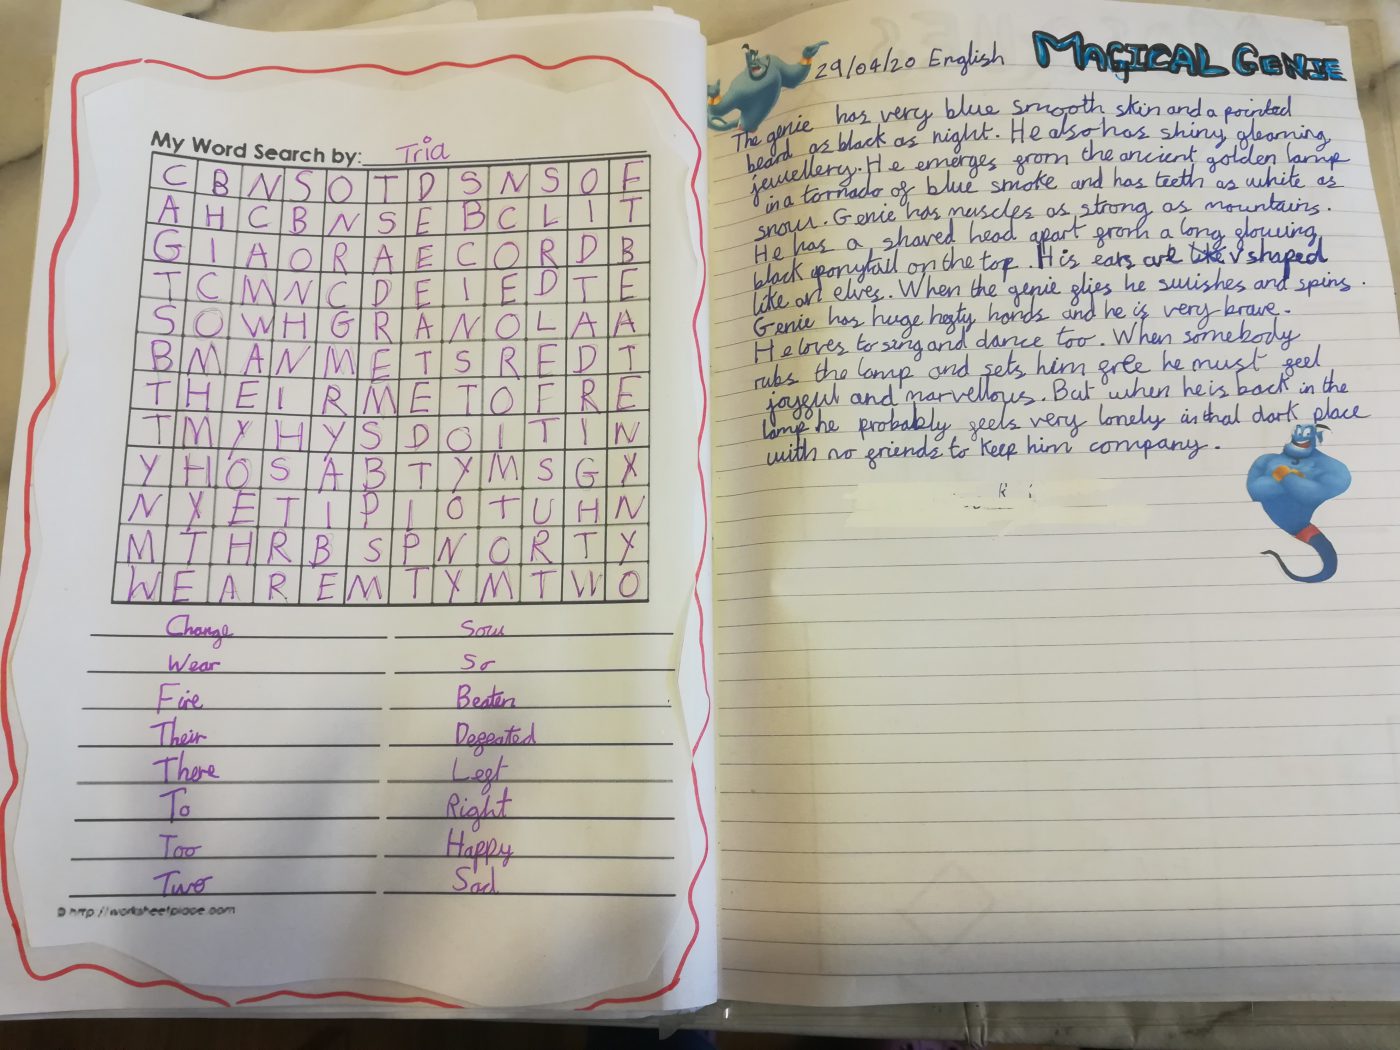 My Word Search by: Tria
C B N S O T D S N S O F
A H C B N S E B C L I T
G I A O R A E C O R D B
T C M N C D E I E D T E
S O W H G R A N O L A A
B M A N M E T S R E D T
T H E I R M E T O F R E
T M Y H Y S D O I T I N
Y H O S A B T Y M S G X
N X E T I P I O T U H N
M T H R B S P N O R T Y
W E A R E M T Y M T W O
Change Sow
Wear So
Fire Beaten
Their Defeated
There Left
To Right
Too Happy
Two Sad
© http://worksheetplace.com
29/04/20 English MAGICAL GENIE
The genie has very blue smooth skin and a pointed
beard as black as night. He also has shiny gleaming
jewellery. He emerges from the ancient golden lamp
in a tornado of blue smoke and has teeth as white as
snow. Genie has muscles as strong as mountains.
He has a shaved head apart from a long glowing
black ponytail on the top. His ears are shaped
like an elves. When the genie flies he swishes and spins.
Genie has huge hefty hands and he is very brave.
He loves to sing and dance too. When somebody
rubs the lamp and sets him free he must feel
joyful and marvellous. But when he is back in the
lamp he probably feels very lonely in that dark place
with no friends to keep him company.